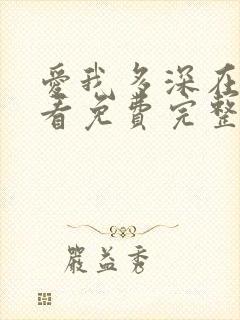 愛我多深在
看免費完整
嚴益秀